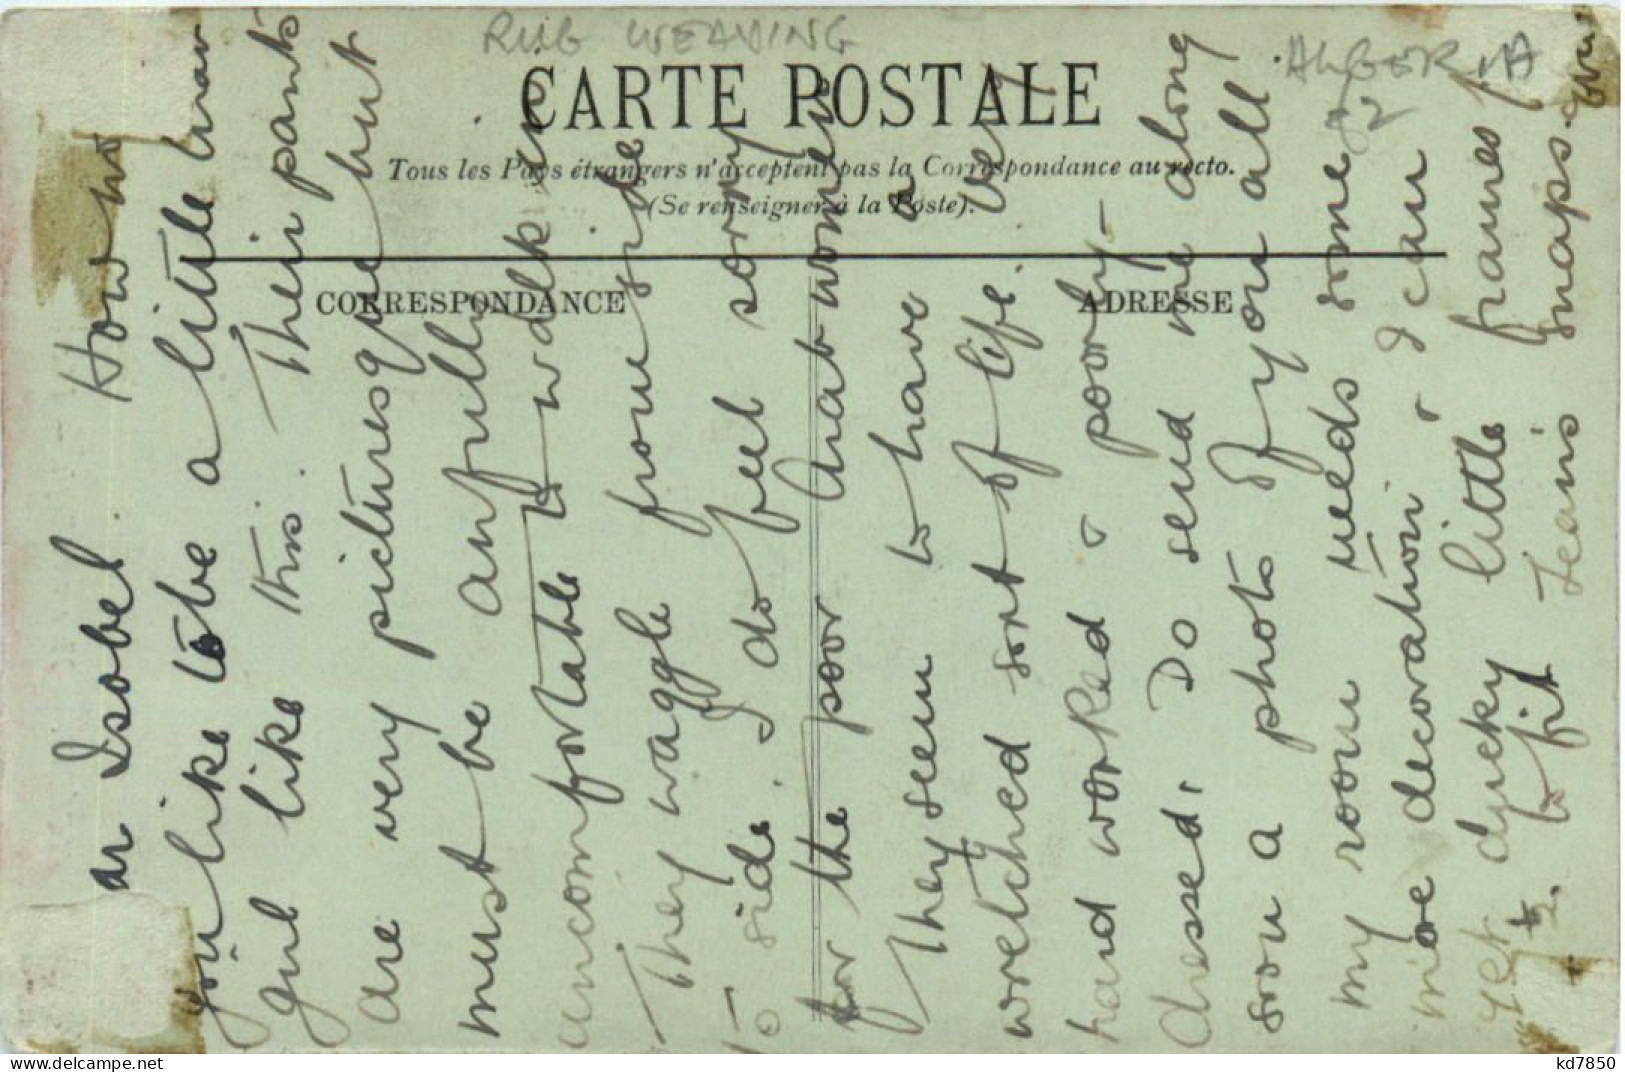 RUG WEAVING
ALGERIA
CARTE POSTALE
Tous les Pays étrangers n'acceptent pas la Correspondance au recto.
(Se renseigner à la Poste).
CORRESPONDANCE
ADRESSE
ar Isobel. How wo
you like to be a little
girl like this. Their pants
are very picturesque but
must be awfully
uncomfortable to walk in
They waggle from side
to side. I do feel sorry
for the poor Arab women
They seem to have a
wretched sort of life. Very
hard worked & poorly -
dressed. Do send me along
soon a photo of you all
my room needs some
more decoration & I can
get ducky little frames f
to fit Jean's snaps.
kd7850